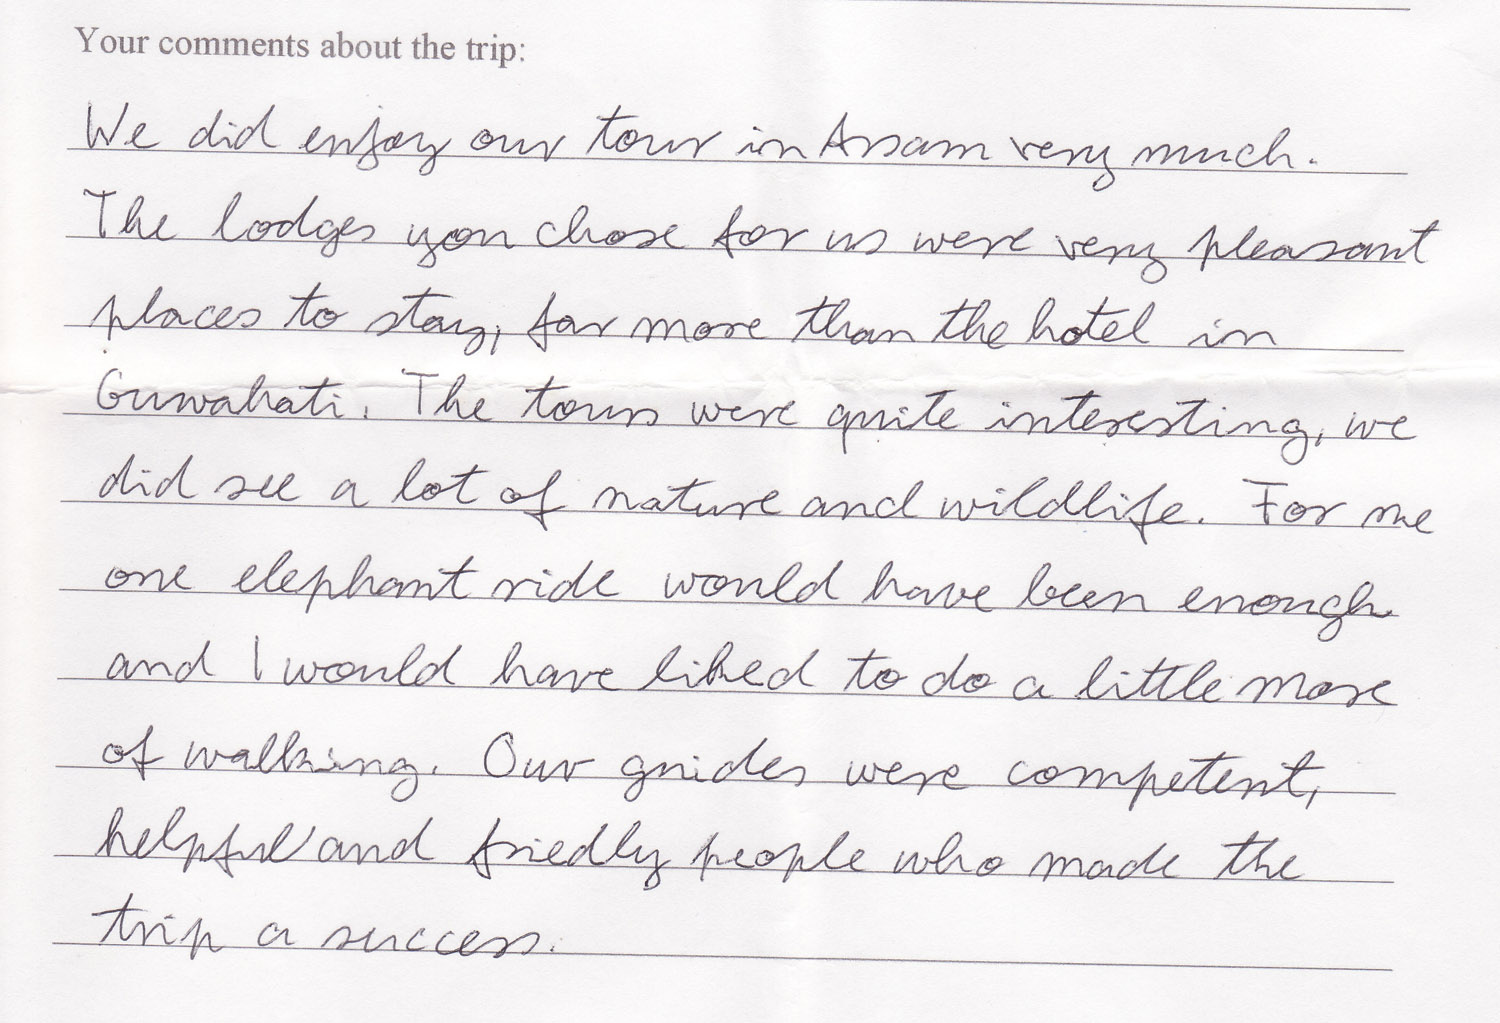 Your comments about the trip:
We did enjoy our tour in Assam very much.
The lodges you chose for us were very pleasant
places to stay, far more than the hotel in
Guwahati. The tours were quite interesting, we
did see a lot of nature and wildlife. For me
one elephant ride would have been enough
and I would have liked to do a little more
of walking. Our guides were competent,
helpful and friedly people who made the
trip a success.